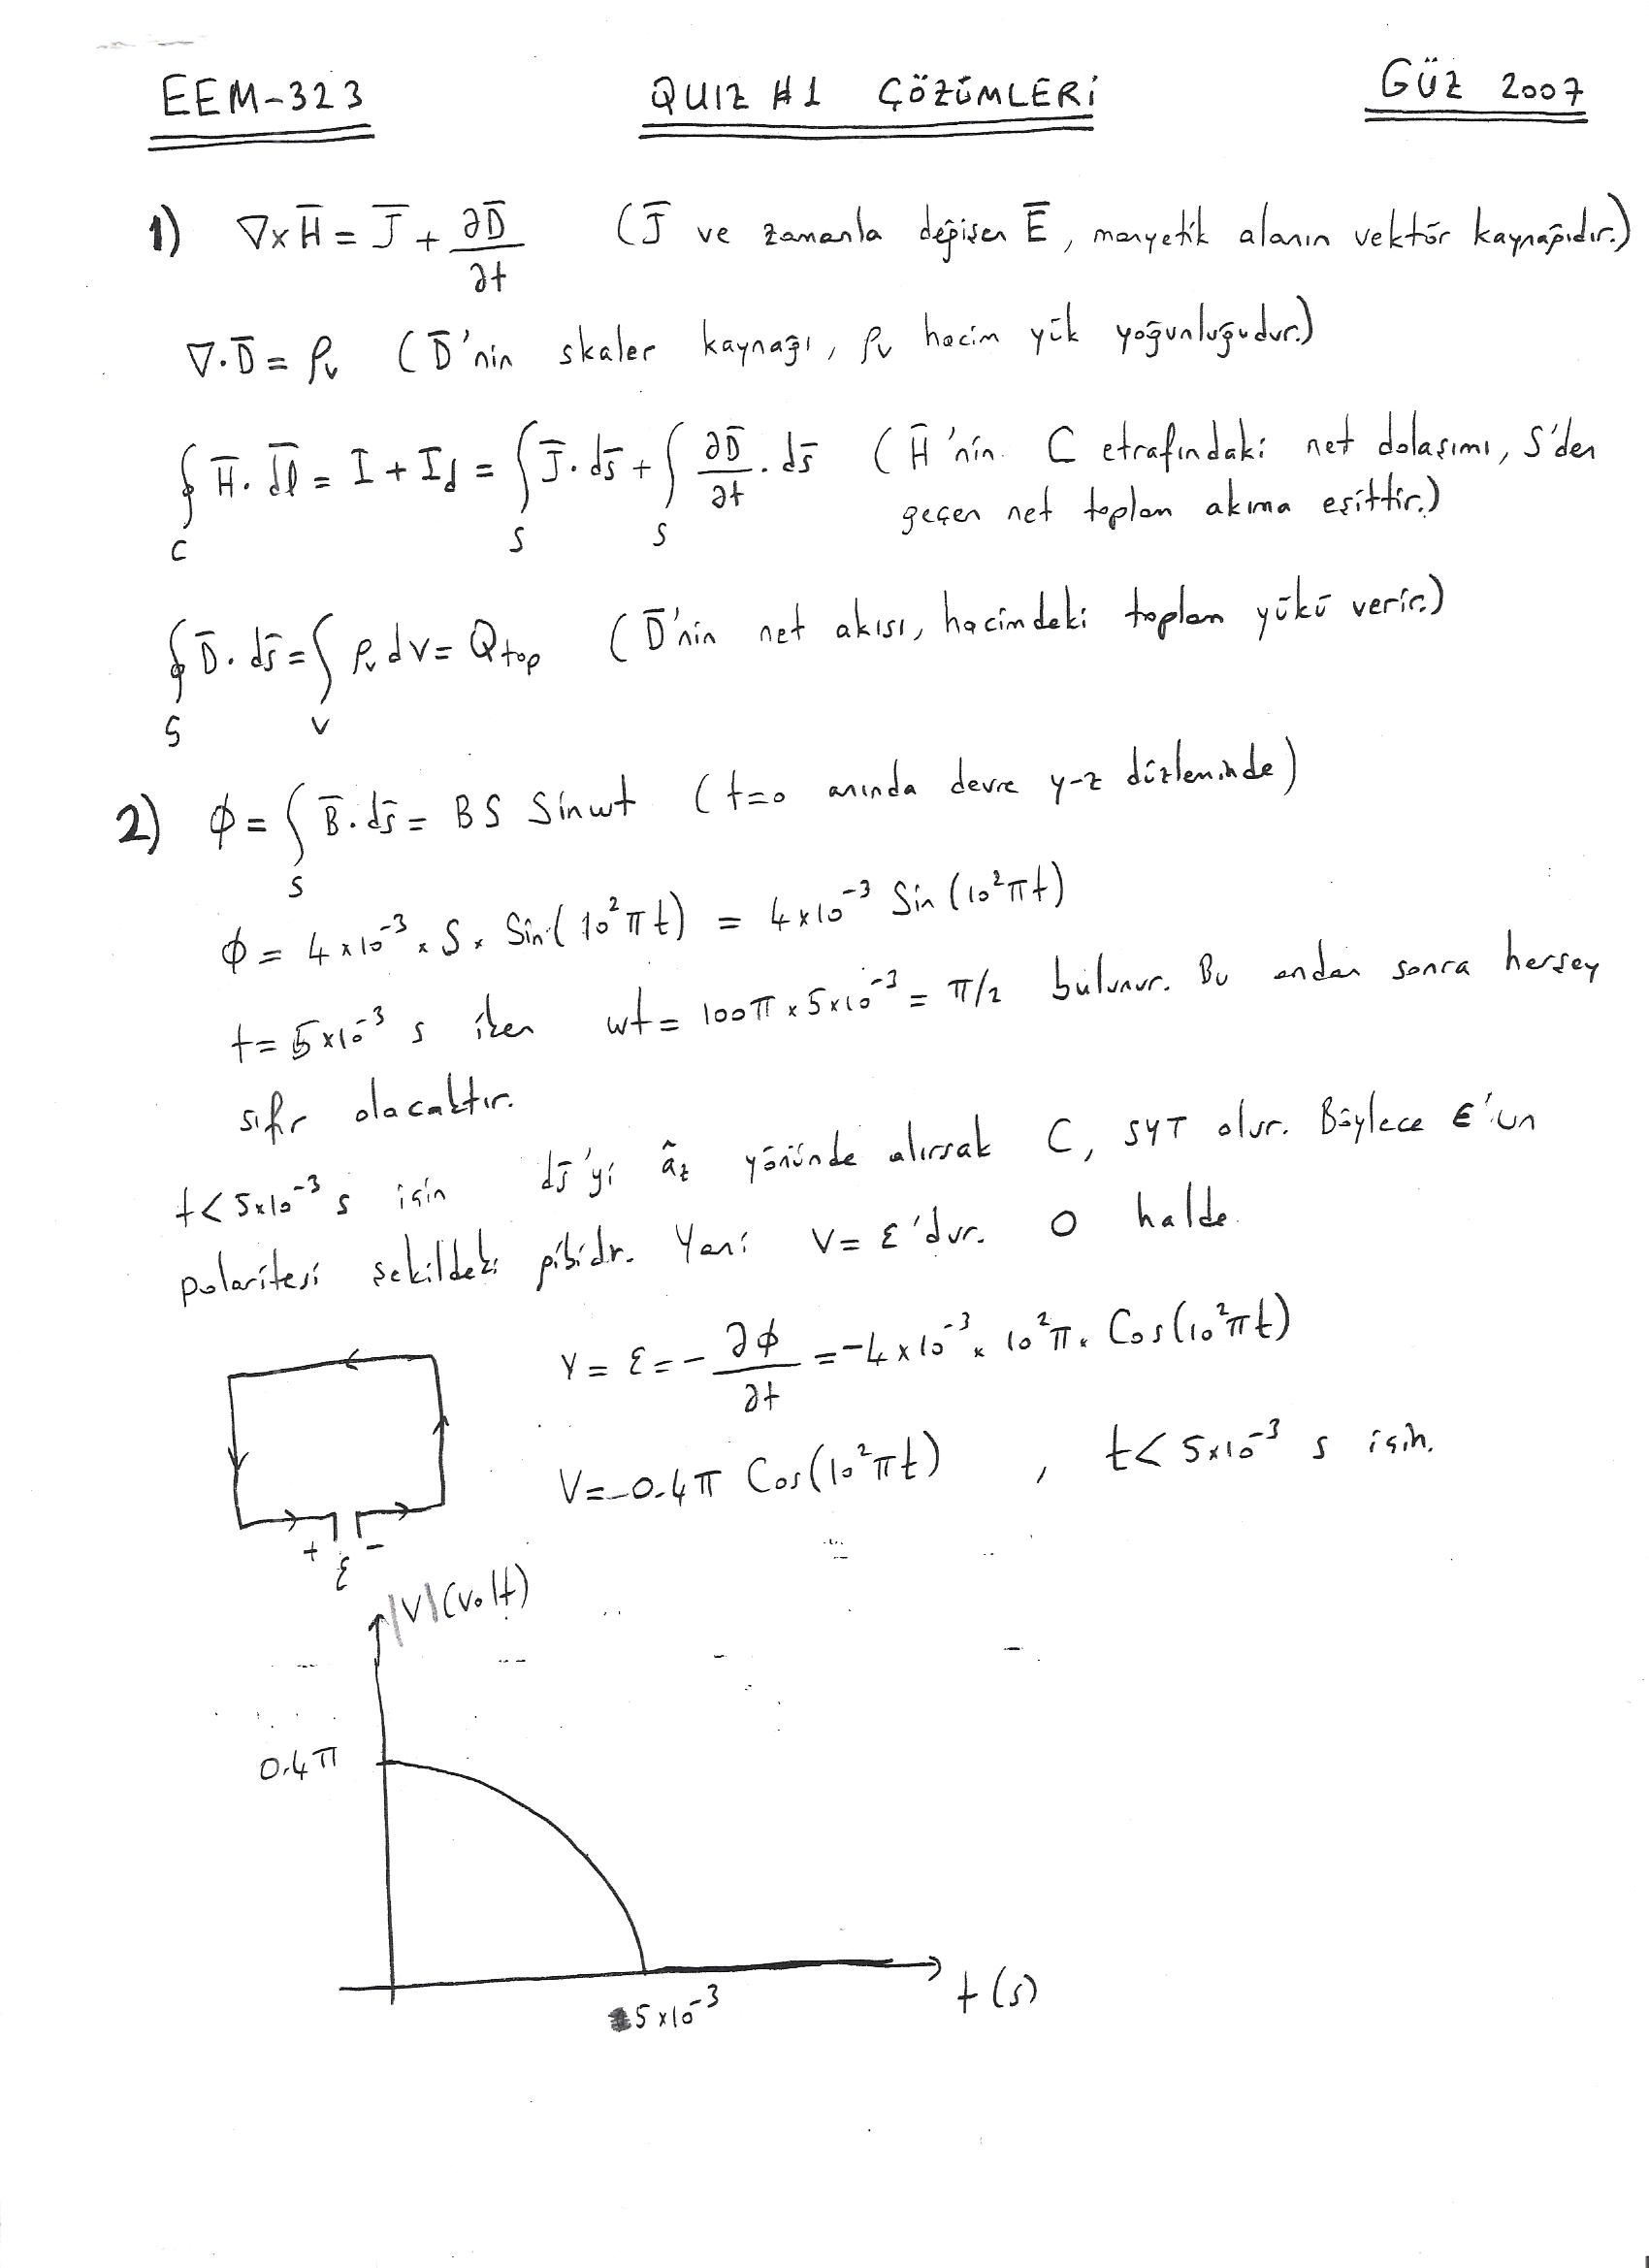 EEM-323 QUIZ #1 ÇÖZÜMLERİ GÜZ 2007
1) ∇×H̄ = J̄ + ∂D̄/∂t (J̄ ve zamanla değişen Ē, manyetik alanın vektör kaynağıdır.)
∇·D̄ = ρv (D̄'nin skaler kaynağı, ρv hacim yük yoğunluğudur.)
∮C H̄·dl̄ = I + Id = ∫S J̄·ds̄ + ∫S ∂D̄/∂t · ds̄ (H̄'nin C etrafındaki net dolaşımı, S'den
geçen net toplam akıma eşittir.)
∮S D̄·ds̄ = ∫V ρv dv = Qtop (D̄'nin net akısı, hacimdeki toplam yükü verir.)
2) φ = ∫S B̄·ds̄ = BS Sinwt (t=0 anında devre y-z düzleminde)
φ = 4×10⁻³ × S × Sin(10²πt) = 4×10⁻³ Sin(10²πt)
t = 5×10⁻³ s iken wt = 100π × 5×10⁻³ = π/2 bulunur. Bu andan sonra herşey
sıfır olacaktır.
t < 5×10⁻³ s için ds̄'yi âz yönünde alırsak C, SYT olur. Böylece ε'un
polaritesi şekildeki gibidir. Yani V = ε'dur. O halde
V = ε = -∂φ/∂t = -4×10⁻³ × 10²π × Cos(10²πt)
V = -0.4π Cos(10²πt) , t < 5×10⁻³ s için.
+ ε -
|V|(volt)
0.4π
5×10⁻³
t(s)